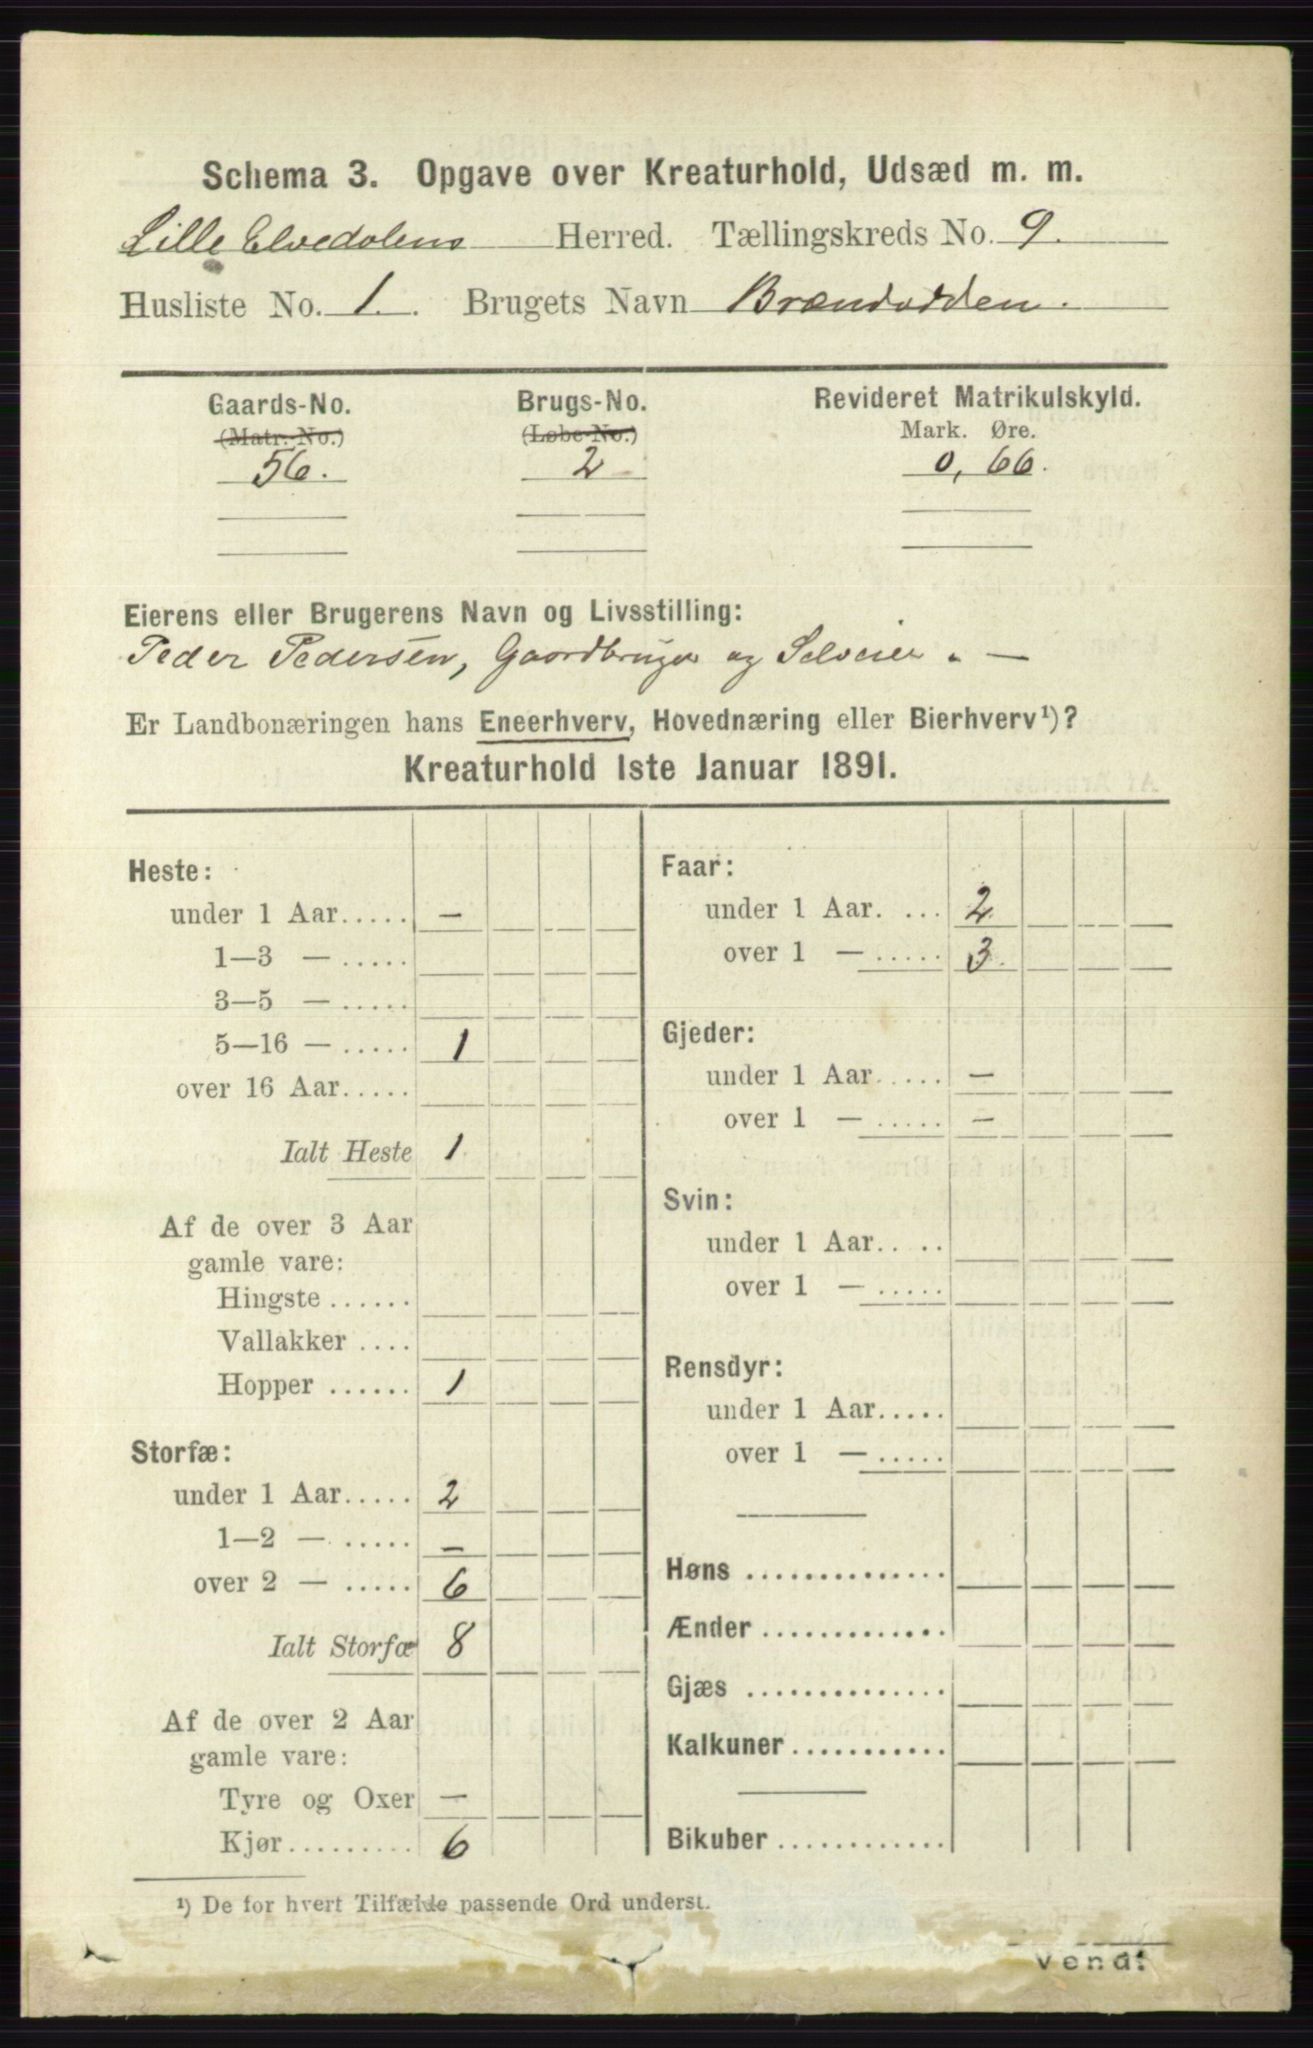 Schema 3. Opgave over Kreaturhold, Udsæd m. m.
Lille Elvedalens Herred. Tællingskreds No. 9.
Husliste No. 1. Brugets Navn Brændodden.
Gaards-No. Brugs-No. Revideret Matrikulskyld.
(Matr.-No.) (Løbe-No.) Mark. Øre.
56. 2 0, 66.
Eierens eller Brugerens Navn og Livsstilling:
Peder Pedersen, Gaardbruger og Selveier. —
Er Landbonæringen hans Eneerhverv, Hovednæring eller Bierhverv¹)?
Kreaturhold 1ste Januar 1891.
Heste:
under 1 Aar..... —
1—3 — .....
3—5 — .....
5—16 — ..... 1
over 16 Aar.....
Ialt Heste 1.
Af de over 3 Aar
gamle vare:
Hingste ......
Vallakker ....
Hopper ...... 1
Storfæ:
under 1 Aar..... 2
1—2 — ..... —
over 2 — ..... 6
Ialt Storfæ 8
Af de over 2 Aar
gamle vare:
Tyre og Oxer —
Kjør.......... 6
Faar:
under 1 Aar. ... 2.
over 1 — ..... 3.
Gjeder:
under 1 Aar..... —
over 1 — ..... —
Svin:
under 1 Aar.. ..
over 1 — .....
Rensdyr:
under 1 Aar.....
over 1 — .....
Høns ..............
Ænder .............
Gjæs ..............
Kalkuner ...........
Bikuber .............
¹) De for hvert Tilfælde passende Ord underst.
Vend!